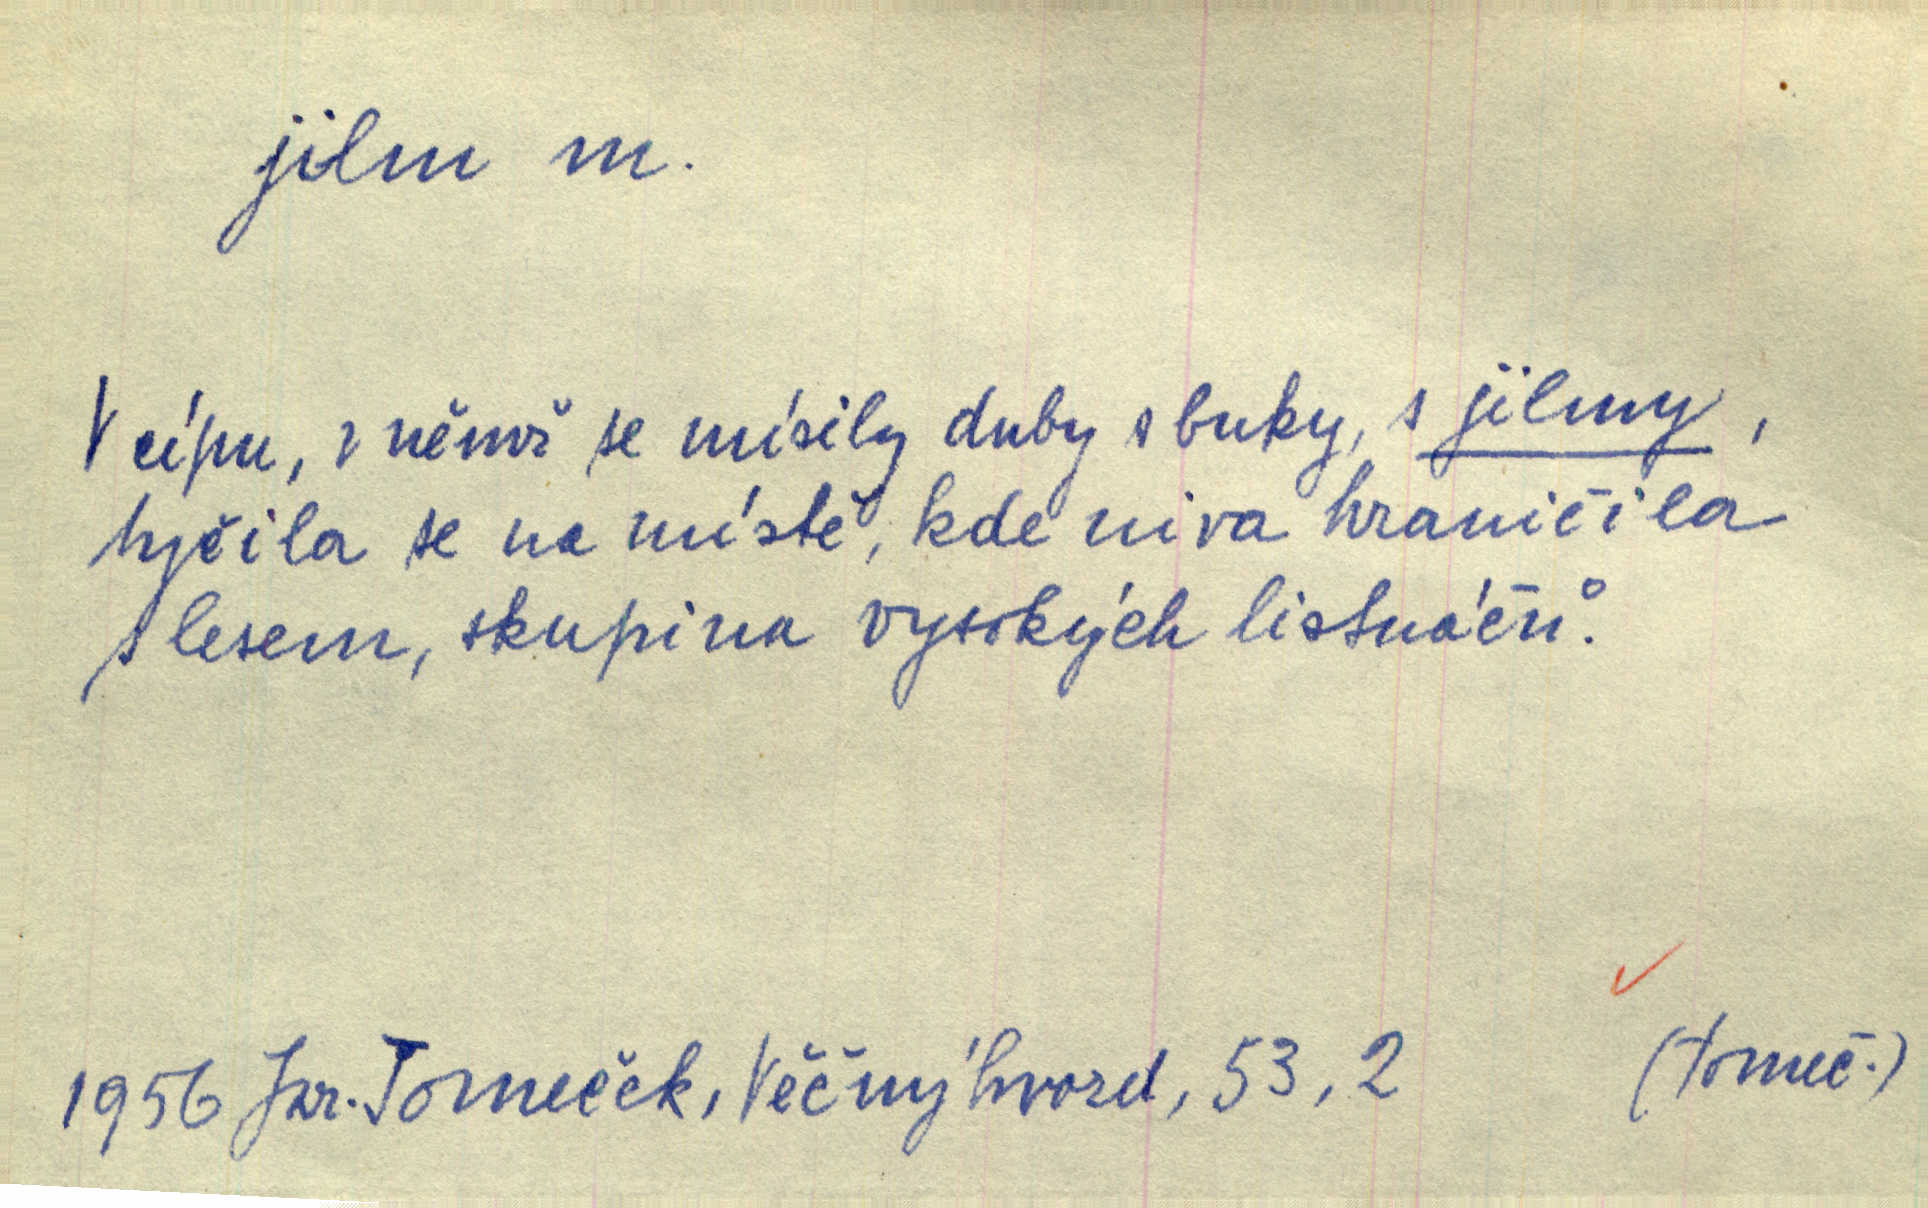 jilm m.
V cípu, v němž se mísily duby s buky, s jilmy,
tyčila se na místě, kde niva hraničila
s lesem, skupina vysokých listnáčů.
1956 Jar. Tomeček, Věčný hvozd, 53, 2
(Tomeč.)